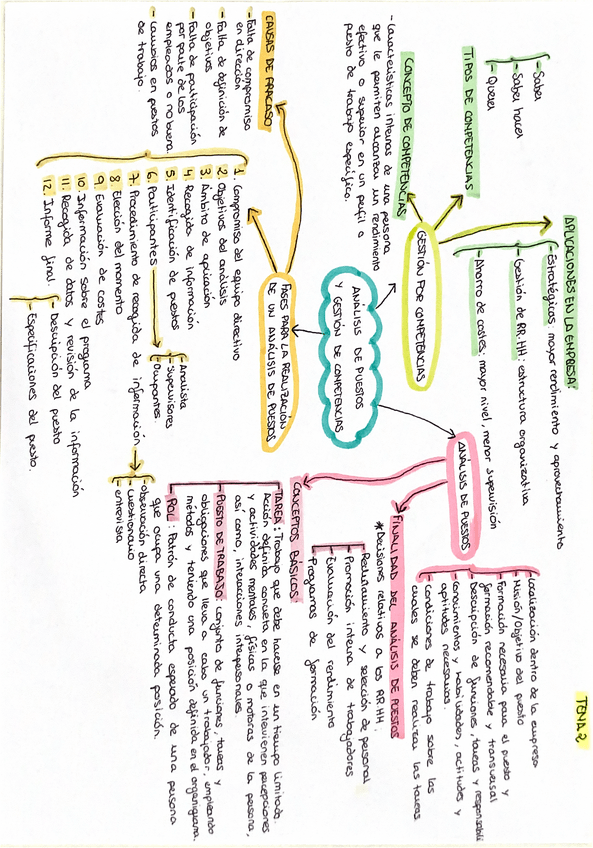 TEMA 2
ANÁLISIS DE PUESTOS
Y GESTIÓN DE COMPETENCIAS
GESTIÓN POR COMPETENCIAS
CONCEPTO DE COMPETENCIAS
- Características internas de una persona
que le permiten alcanzar un rendimiento
efectivo o superior en un perfil o
puesto de trabajo específico.
TIPOS DE COMPETENCIAS
- Saber
- Saber hacer
- Querer
APLICACIONES EN LA EMPRESA
- Estratégicas: mayor rendimiento y aprovechamiento
- Gestión de RR.HH: estructura organizativa
- Ahorro de costes: mayor nivel, menor supervisión
ANÁLISIS DE PUESTOS
- Localización dentro de la empresa
- Misión/objetivo del puesto
- Formación necesaria para el puesto y
formación recomendable y transversal
- Descripción de funciones, tareas y responsabili
- Conocimientos y habilidades, actitudes y
aptitudes necesarias.
- Condiciones de trabajo sobre las
cuales se deben realizar las tareas.
FINALIDAD DEL ANÁLISIS DE PUESTOS
* Decisiones relativas a los RR.HH.
- Reclutamiento y selección de personal
- Promoción interna de trabajadores
- Evaluación del rendimiento
- Programas de formación
CONCEPTOS BÁSICOS:
TAREA: Trabajo que debe hacerse en un tiempo limitado.
Acción definida concreta en la que intervienen percepciones
y actividades mentales, físicas o motoras de la persona,
así como, interacciones interpersonales.
- PUESTO DE TRABAJO: conjunto de funciones, tareas y
obligaciones que lleva a cabo un trabajador, empleando
métodos y teniendo una posición definida en el organigrama.
- ROL: Patrón de conducta esperado de una persona
que ocupa una determinada posición.
FASES PARA LA REALIZACIÓN
DE UN ANÁLISIS DE PUESTOS
CAUSAS DE FRACASO
- Falta de compromiso
en dirección
- Falta de definición de
objetivos
- Falta de participación
por parte de los
empleados
- Cambios en puestos
de trabajo.
1. Compromiso del equipo directivo
2. Objetivos del análisis
3. Ámbito de aplicación
4. Recogida de información
5. Identificación de puestos
6. Participantes
- Analista
- Supervisores
- Ocupantes
7. Procedimiento de recogida de información
- observación directa
- cuestionario
- entrevista
8. Elección del momento
9. Evaluación de costes
10. Información sobre el programa
11. Recogida de datos y revisión de la información
12. Informe final.
- Descripción del puesto
- Especificaciones del puesto.